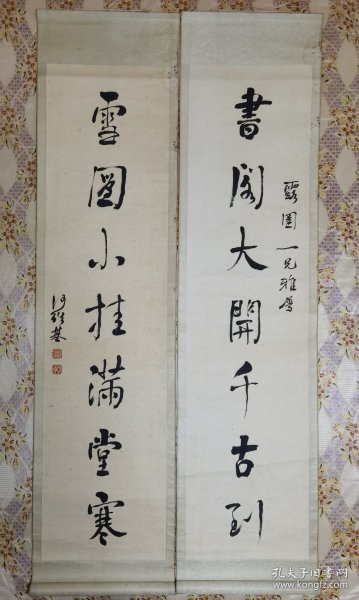 書閣大開千古到
一兄雅屬
雪圖小挂滿堂寒
孔夫子旧书网